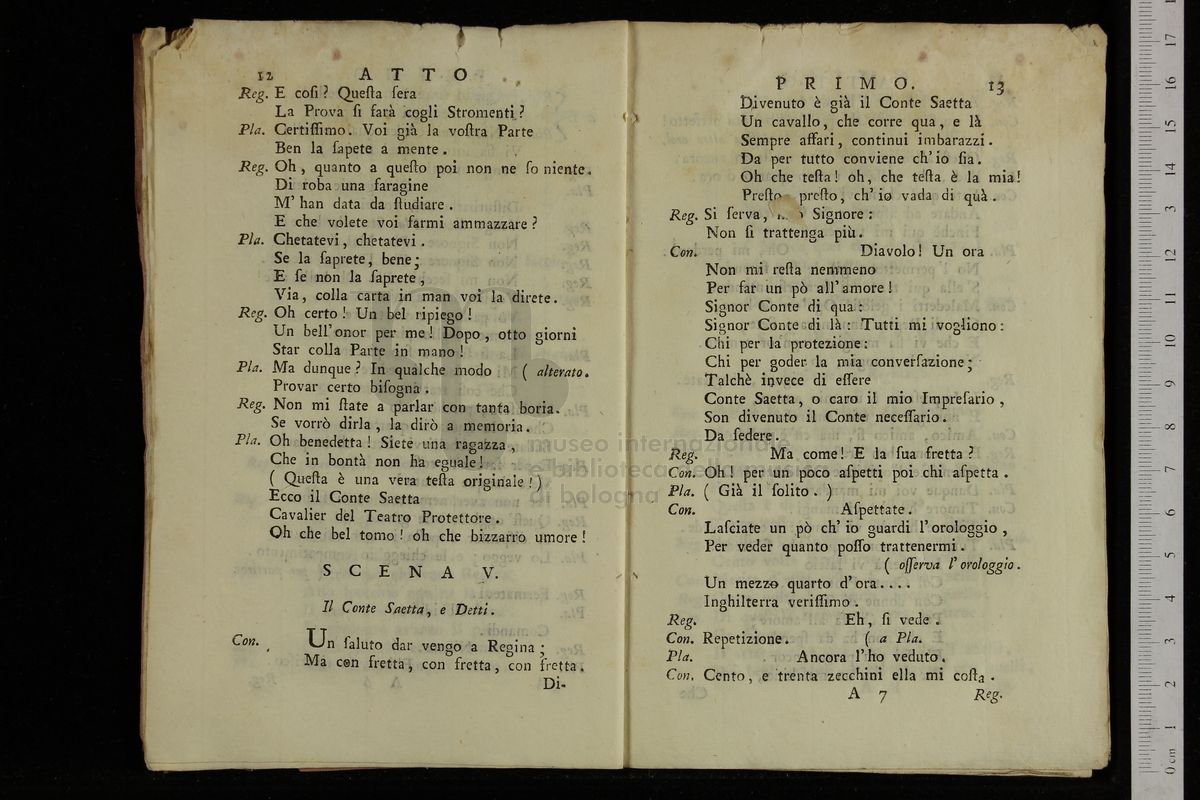 12 ATTO
Reg. E coſi? Queſta ſera
La Prova ſi farà cogli Stromenti?
Pla. Certiſſimo. Voi già la voſtra Parte
Ben la ſapete a mente.
Reg. Oh, quanto a queſto poi non ne ſo niente.
Di roba una faragine
M' han data da ſtudiare.
E che volete voi farmi ammazzare?
Pla. Chetatevi, chetatevi.
Se la ſaprete, bene;
E ſe non la ſaprete,
Via, colla carta in man voi la direte.
Reg. Oh certo! Un bel ripiego!
Un bell'onor per me! Dopo, otto giorni
Star colla Parte in mano!
Pla. Ma dunque? In qualche modo ( alterato.
Provar certo biſogna.
Reg. Non mi ſtate a parlar con tanta boria.
Se vorrò dirla, la dirò a memoria.
Pla. Oh benedetta! Siete una ragazza,
Che in bontà non ha eguale!
( Queſta è una vera teſta originale! )
Ecco il Conte Saetta
Cavalier del Teatro Protettore.
Oh che bel tomo! oh che bizzarro umore!
SCENA V.
Il Conte Saetta, e Detti.
Con. Un ſaluto dar vengo a Regina;
Ma con fretta, con fretta, con fretta.
Di-
PRIMO. 13
Divenuto è già il Conte Saetta
Un cavallo, che corre qua, e là
Sempre affari, continui imbarazzi.
Da per tutto conviene ch' io ſia.
Oh che teſta! oh, che teſta è la mia!
Preſto preſto, ch' io vada di quà.
Reg. Si ſerva, Signore:
Non ſi trattenga più.
Con. Diavolo! Un ora
Non mi reſta nemmeno
Per far un pò all' amore!
Signor Conte di qua:
Signor Conte di là: Tutti mi vogliono:
Chi per la protezione:
Chi per goder la mia converſazione;
Talchè invece di eſſere
Conte Saetta, o caro il mio Impreſario,
Son divenuto il Conte neceſſario.
Da ſedere.
Reg. Ma come! E la ſua fretta?
Con. Oh! per un poco aſpetti poi chi aſpetta.
Pla. ( Già il ſolito. )
Con. Aſpettate.
Laſciate un pò ch' io guardi l' orologgio,
Per veder quanto poſſo trattenermi.
( oſſerva l' orologgio.
Un mezzo quarto d' ora....
Inghilterra veriſſimo.
Reg. Eh, ſi vede.
Con. Repetizione. ( a Pla.
Pla. Ancora l' ho veduto.
Con. Cento, e trenta zecchini ella mi coſta.
A 7 Reg.
museo internazionale
e biblioteca della musica
di bologna